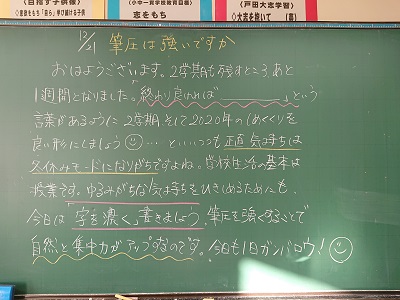 目指す子供像
(小中一貫学校教育目標)
志をもち
(戸田大志学習)
大志を抱いて
筆圧は強いですか
おはようございます。2学期も残すところあと
1週間となりました。「終わり良ければ　　　　　　」という
言葉があるように 2学期、そして2020年のしめくくりを
良い形にしましょう … といいつつも 正直 気持ちは
冬休みモードになりがちですよね。学校生活の基本は
授業です。ゆるみがちな気持ちをひきしめるためにも、
今日は「字を濃く」書きましょう。筆圧を強くすることで
自然と集中力がアップするのです。今日も1日ガンバロウ!